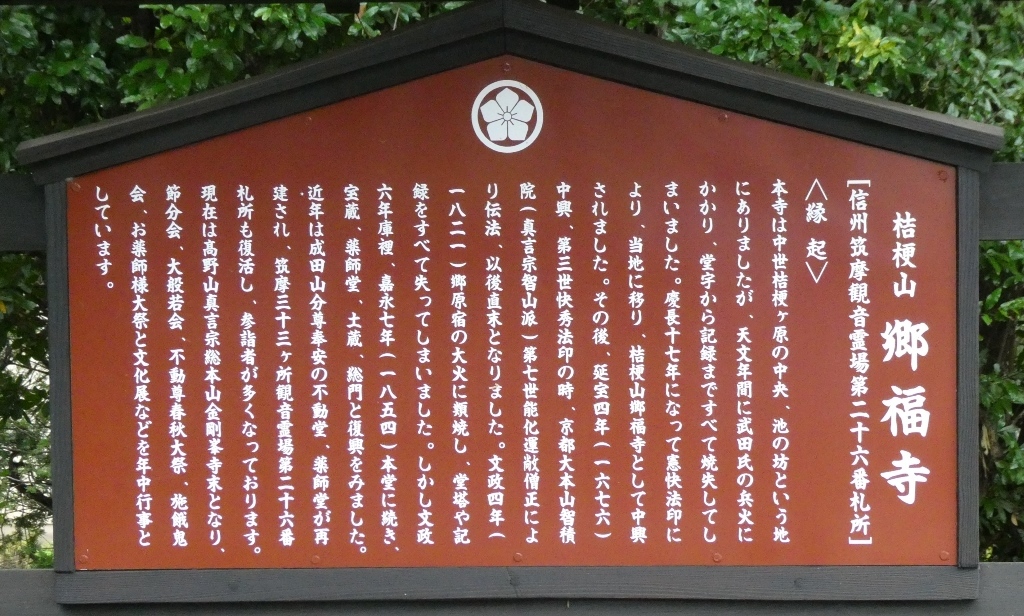 桔梗山 郷福寺
[信州筑摩観音霊場第二十六番札所]
〈縁起〉
本寺は中世桔梗ヶ原の中央、池の坊という地
にありましたが、天文年間に武田氏の兵火に
かかり、堂宇から記録まですべて焼失してし
まいました。慶長十七年になって憲快法印に
より、当地に移り、桔梗山郷福寺として中興
されました。その後、延宝四年(一六七六)
中興、第三世快秀法印の時、京都大本山智積
院(真言宗智山派)第七世能化運敞僧正によ
り伝法、以後直末となりました。文政四年(
一八二一)郷原宿の大火に類焼し、堂塔や記
録をすべて失ってしまいました。しかし文政
六年庫裡、嘉永七年(一八五四)本堂に続き、
宝蔵、薬師堂、土蔵、総門と復興をみました。
近年は成田山分尊奉安の不動堂、薬師堂が再
建され、筑摩三十三ヶ所観音霊場第二十六番
札所も復活し、参詣者が多くなっております。
現在は高野山真言宗総本山金剛峯寺末となり、
節分会、大般若会、不動尊春秋大祭、施餓鬼
会、お薬師様大祭と文化展などを年中行事と
しています。